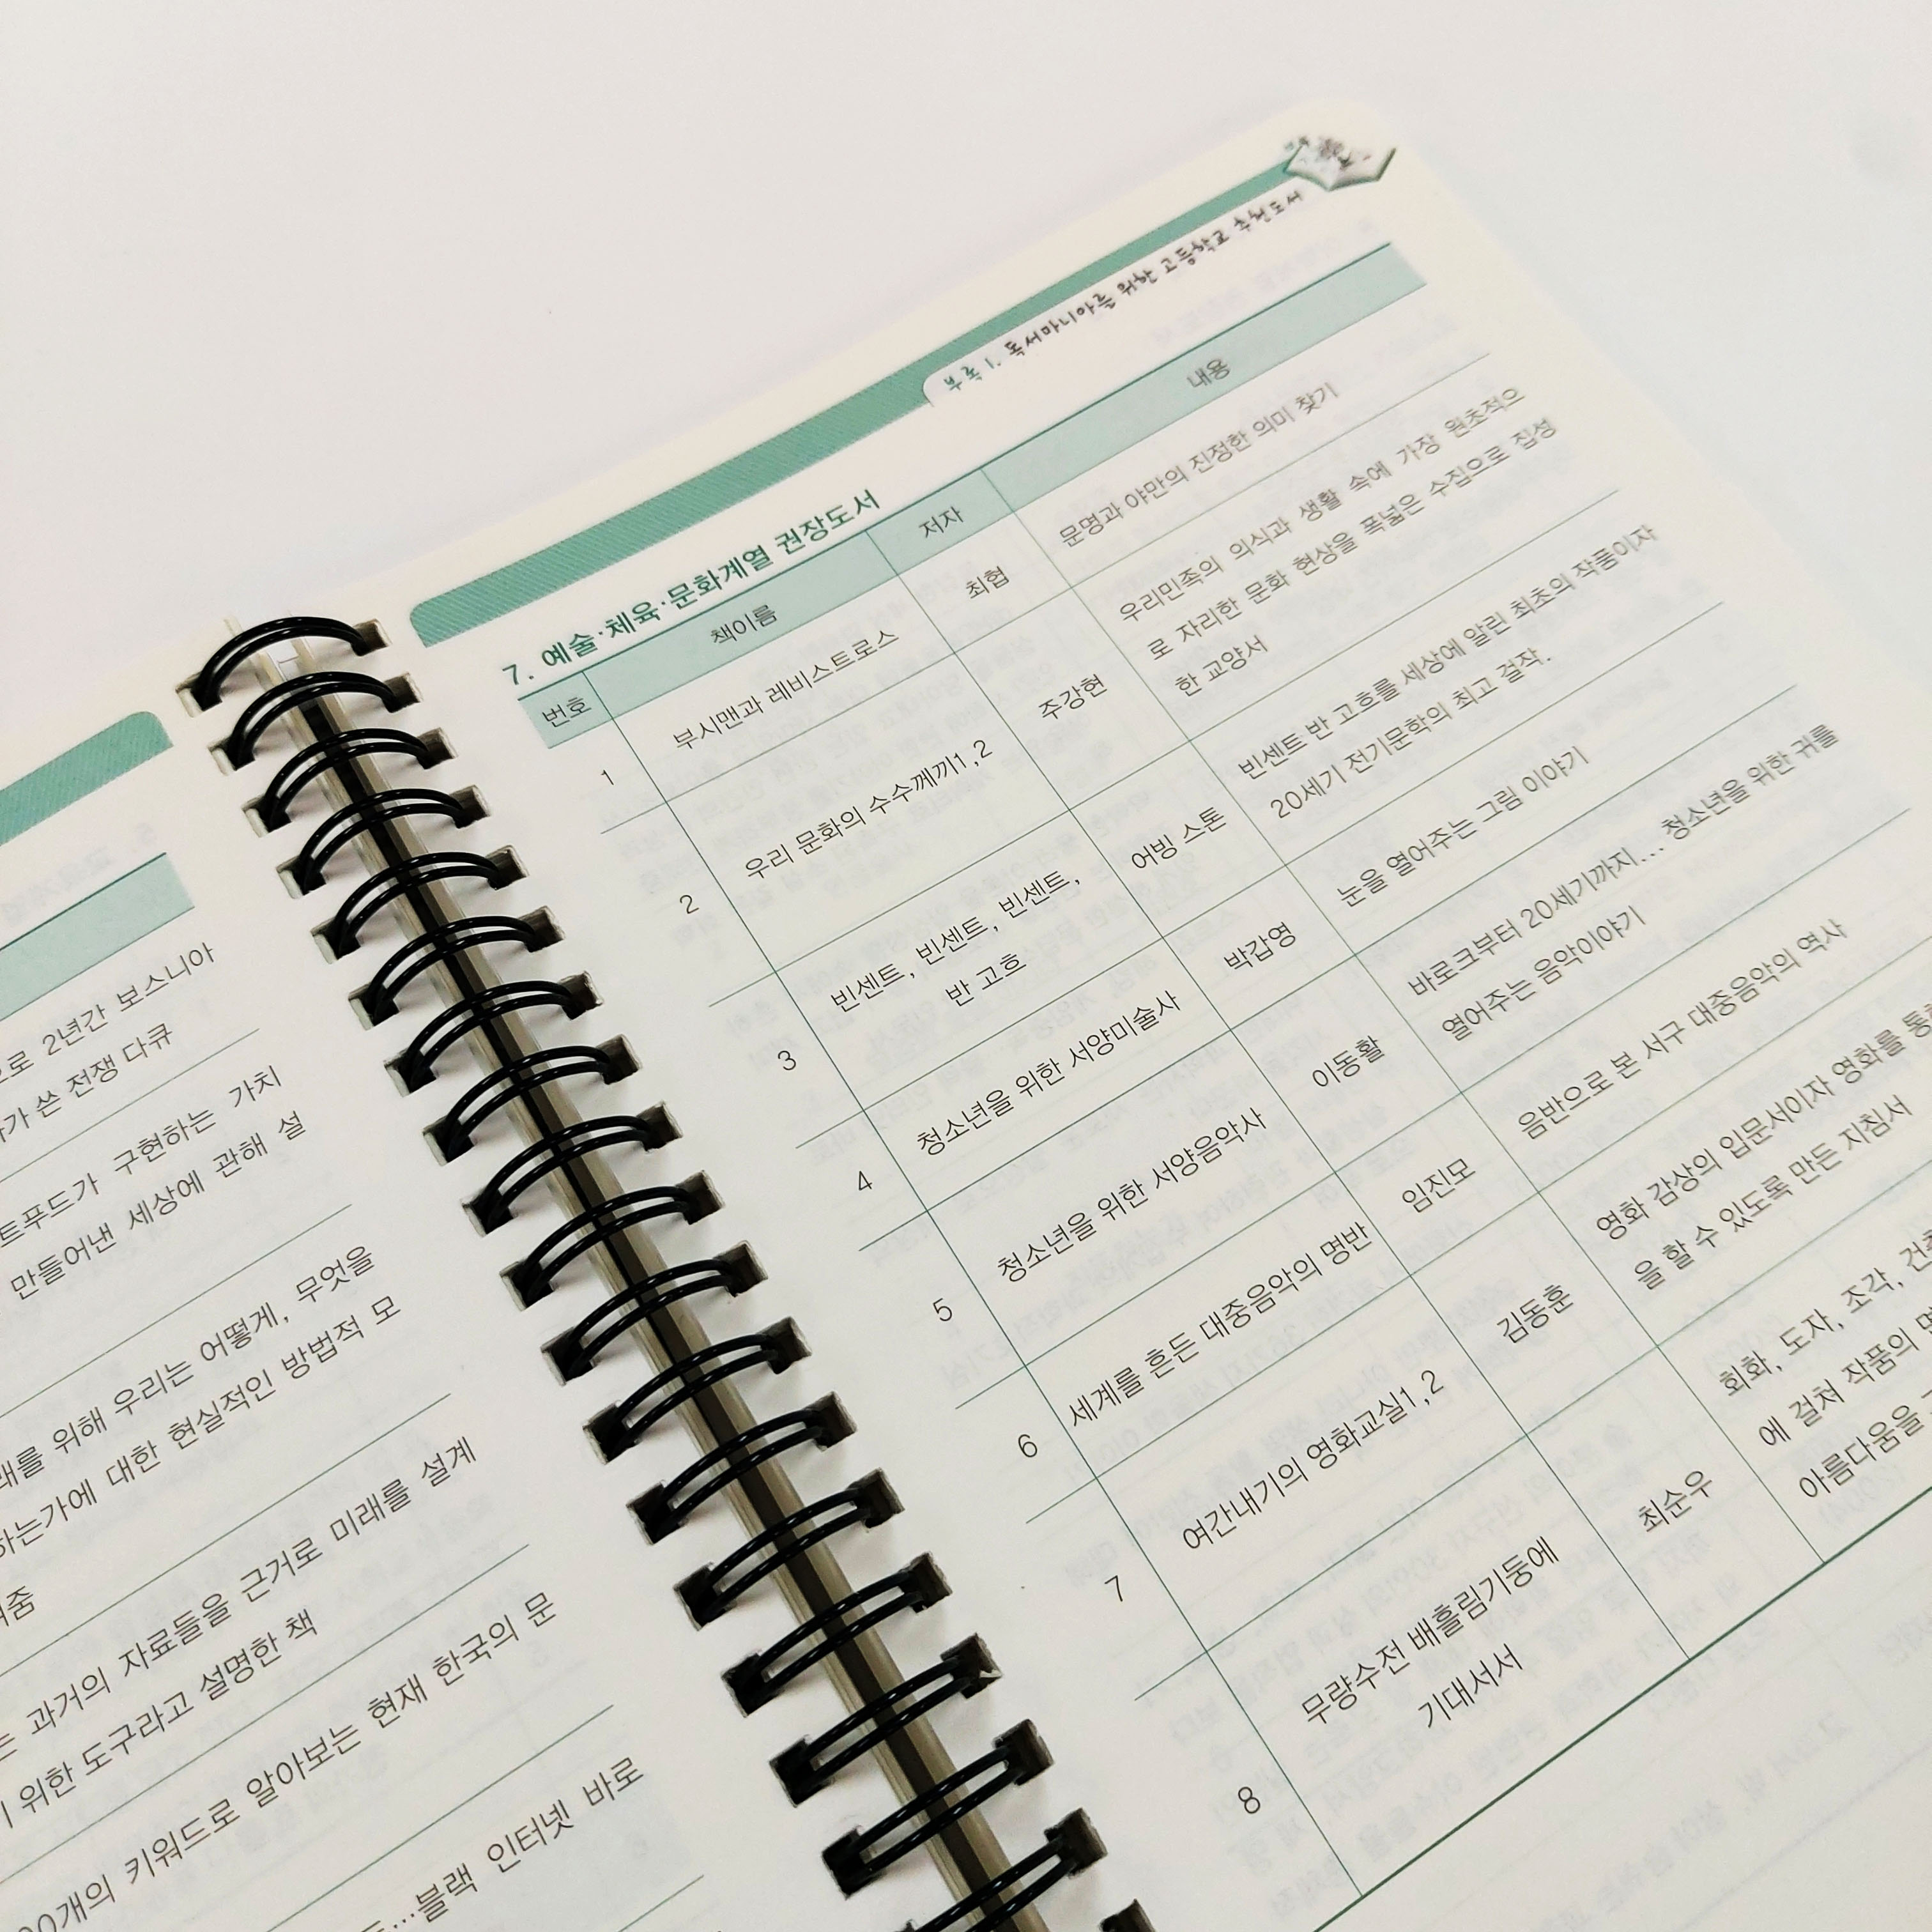 으로 2년간 보스니아
가 쓴 전쟁 다큐
트푸드가 구현하는 가치
만들어낸 세상에 관해 설
래를 위해 우리는 어떻게, 무엇을
하는가에 대한 현실적인 방법적 모
여줌
는 과거의 자료들을 근거로 미래를 설계
기 위한 도구라고 설명한 책
00개의 키워드로 알아보는 현재 한국의 문
드...블랙 인터넷 바로
부록 1. 독서마니아를 위한 고등학교 추천도서
7. 예술·체육·문화계열 권장도서
번호 책이름 저자 내용
1 부시맨과 레비스트로스 최협 문명과 야만의 진정한 의미 찾기
2 우리 문화의 수수께끼1,2 주강현 우리민족의 의식과 생활 속에 가장 원초적으
로 자리한 문화 현상을 폭넓은 수집으로 집성
한 교양서
3 빈센트, 빈센트, 빈센트, 어빙 스톤 빈센트 반 고흐를 세상에 알린 최초의 작품이자
반 고흐 20세기 전기문학의 최고 걸작.
4 청소년을 위한 서양미술사 박갑영 눈을 열어주는 그림 이야기
5 청소년을 위한 서양음악사 이동활 바로크부터 20세기까지... 청소년을 위한 귀를
열어주는 음악이야기
6 세계를 흔든 대중음악의 명반 임진모 음반으로 본 서구 대중음악의 역사
7 여간내기의 영화교실1,2 김동훈 영화 감상의 입문서이자 영화를 통
을 할 수 있도록 만든 지침서
8 무량수전 배흘림기둥에 최순우 회화, 도자, 조각, 건축
기대서서 에 걸쳐 작품의
아름다움을